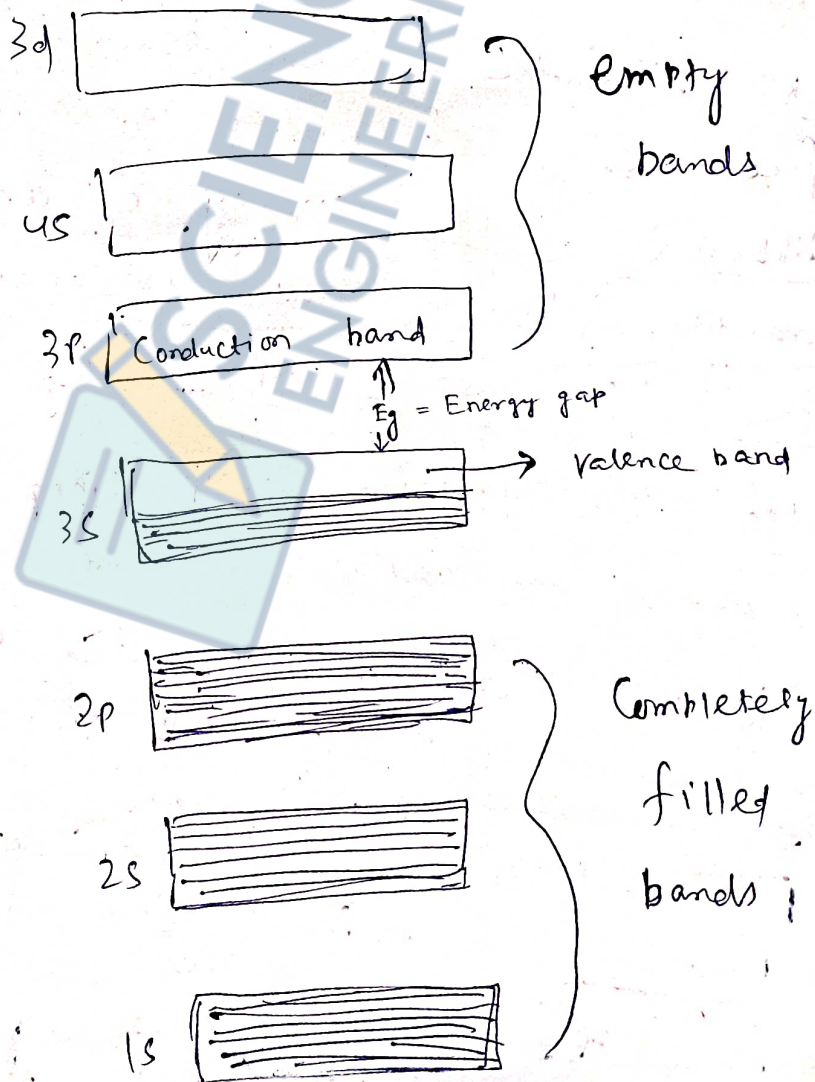 3d
empty
bands
4s
3p
Conduction band
Eg = Energy gap
valence band
3s
2p
Completely
filled
bands
2s
1s
SCIEN
ENGINEERI